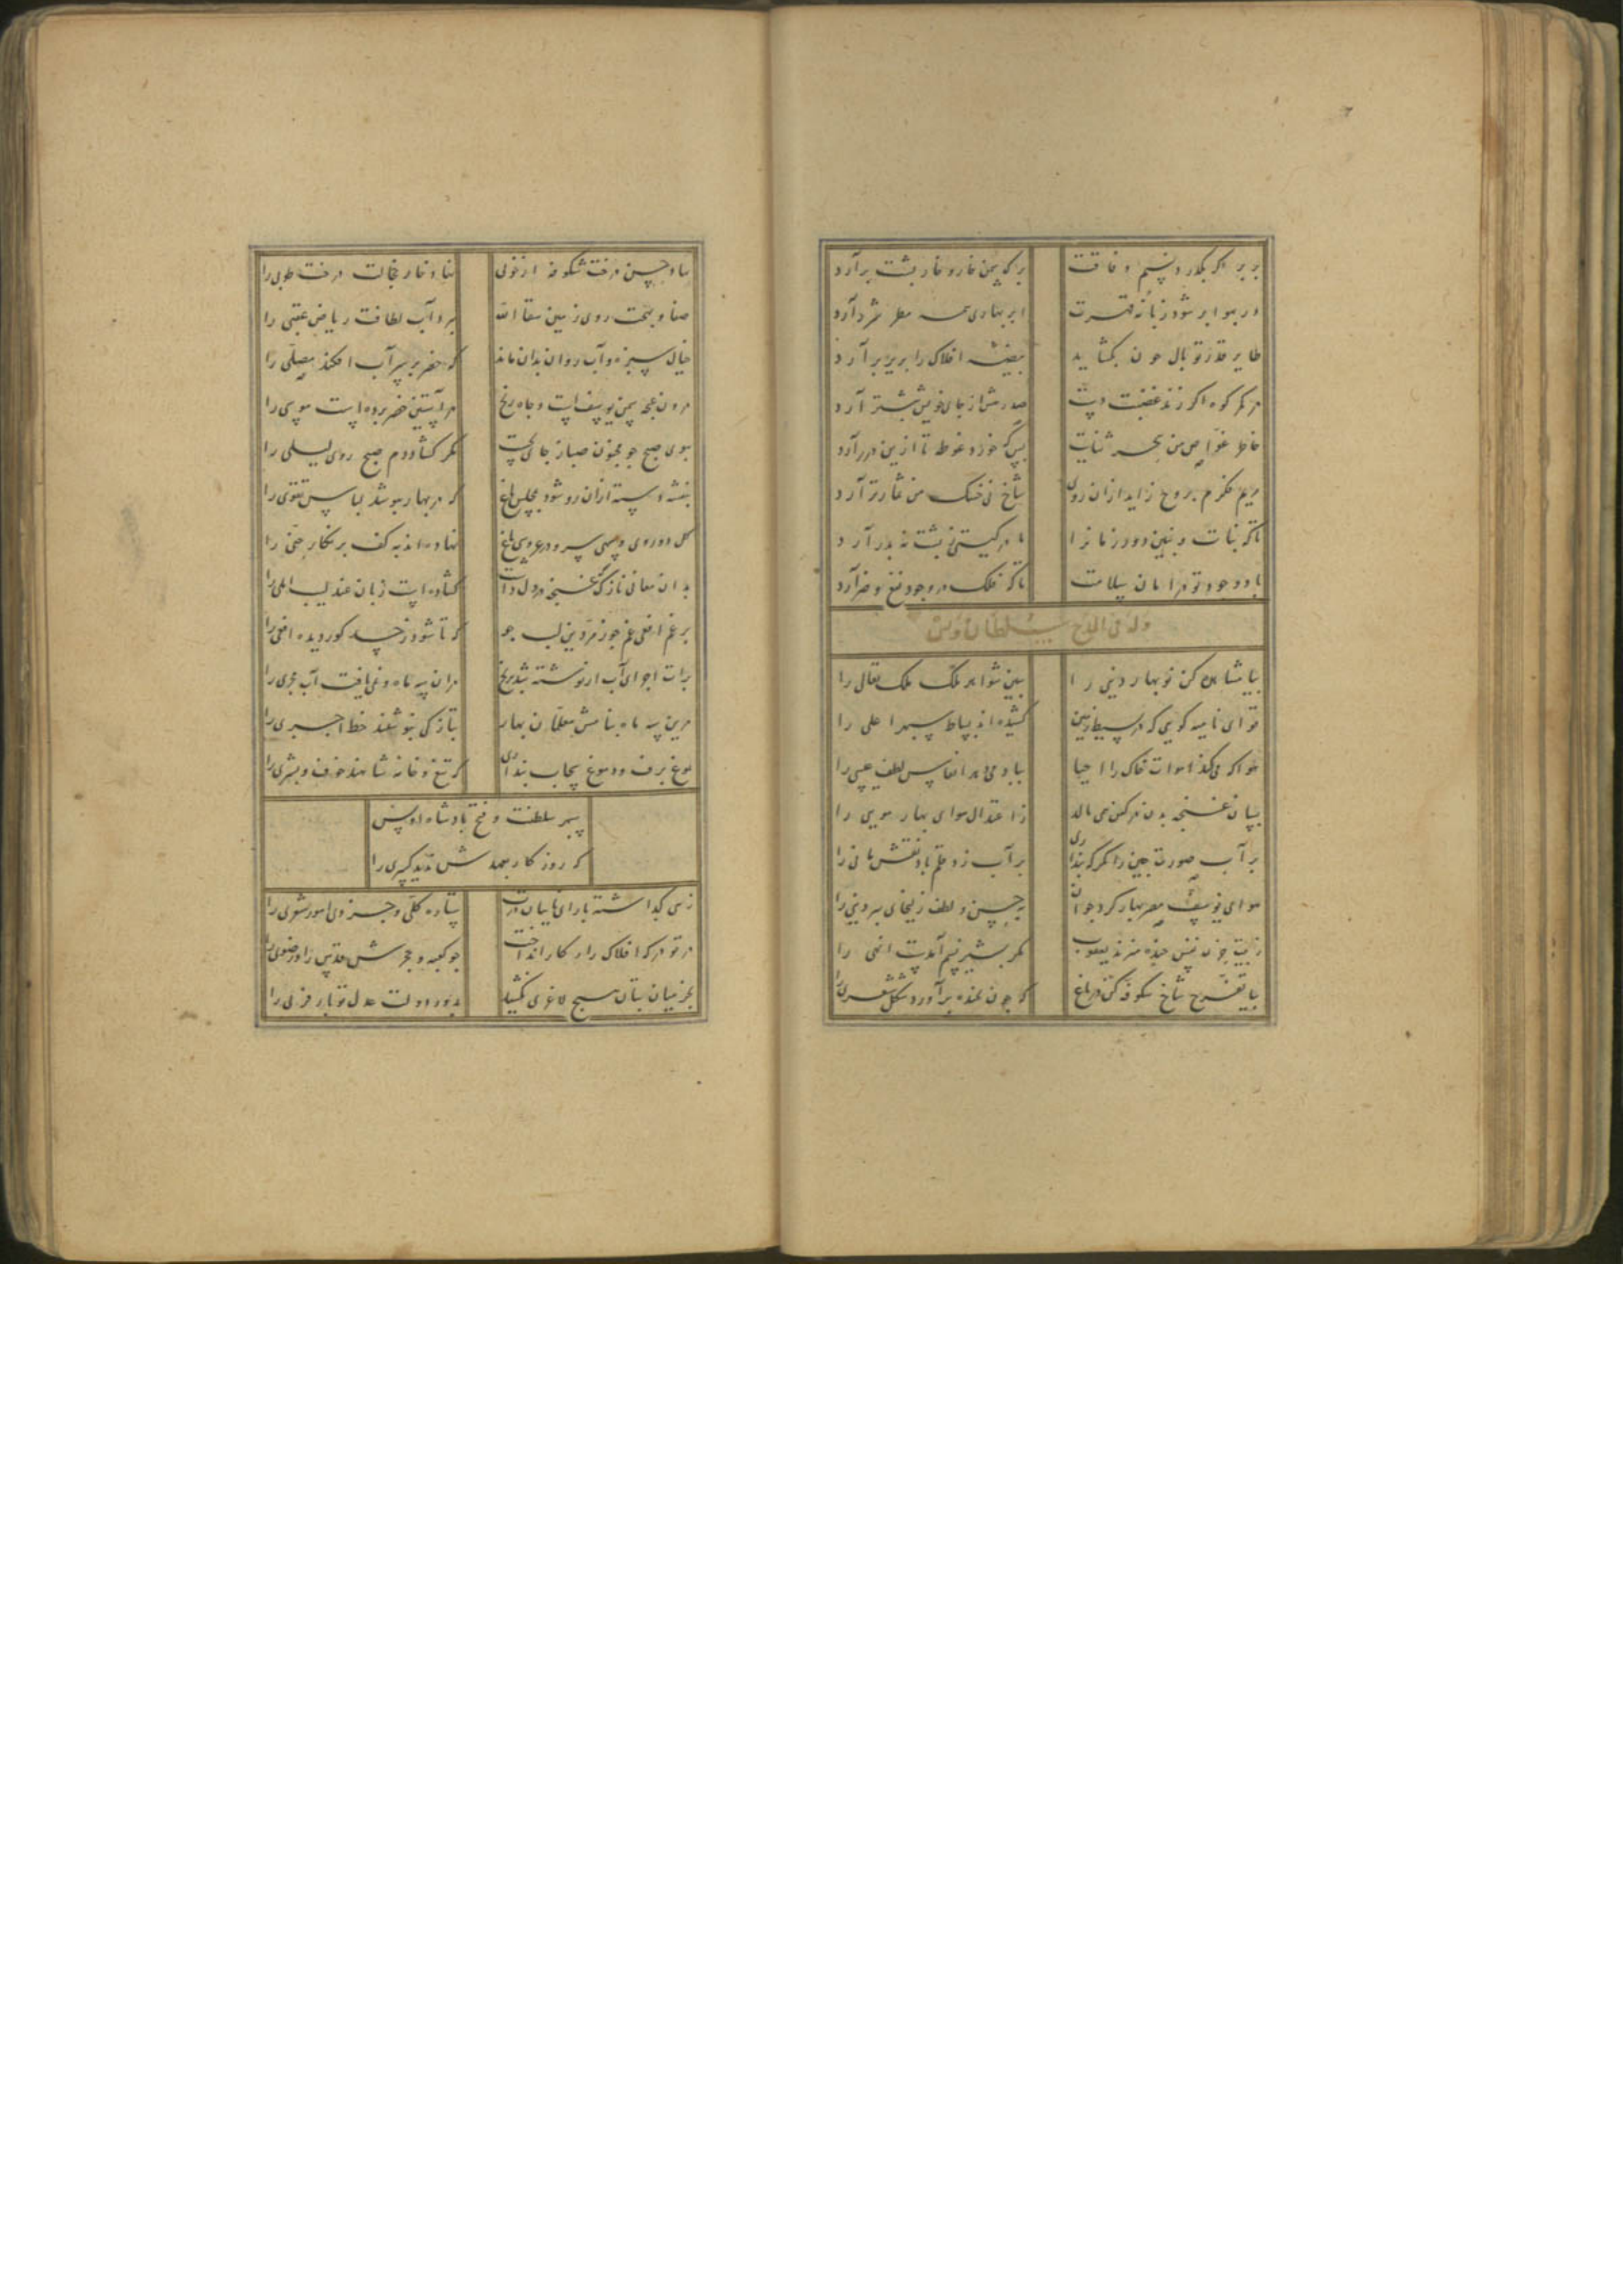 بر بر اگر بگذرد نسیم وفاقت
برگ سمن خار و خار پشت برآرد
در به هوا بر شود زبانه قهرت
ابر بهاری همه مطر شرر آرد
طایر قدر تو بال چون بگشاید
بیضه افلاک را بزیر پر آرد
در کمر کوه اگر زند غضبت دست
صد رهش از جای خویش بیشتر آرد
خاطر غواص من ببحر ثنایت
بس که خورد غوطه تا ازین درر آرد
مریم فکرم بروح زاید ازان روی
شاخ نی خشک من ثمار تر آرد
تا که بنات و بنین دور زمانرا
مادر گیتی ز پشت نه پدر آرد
باد وجود تو در امان سلامت
تا که فلک در وجود نفع و ضر آرد
وله فی المدح سلطان اویس
بیا مشاهده کن نوبهار دنیی را
ببین شواهد ملک ملک تعالی را
قوای نامیه گویی که در بسیط زمین
کشیده‌اند بساط سپهر اعلی را
هوا که می‌کند اموات خاک را احیا
بباد می‌دهد انفاس لطف عیسی را
بسان غنچه بدن در کفن همی بالد
ز اعتدال هوای بهار موسی را
بر آب صورت چین را نگر که پنداری
بر آب زد قلم باد نقش مانی را
هوای یوسف مصر بهار کرد جوان
به حسن و لطف زلیخای پیر دنیی را
زبیت حزن نفس خنده میزند یعقوب
مگر بشیر نسیم آمدست انهی را
بیا تفرج شاخ شکوفه کن در باغ
که چون بخنده برآورد شکل شعری را
بباد حسن درخت شکوفه از خوبی
نهاد خار خجالت درخت طوبی را
صفا و بهجت روی زمین سقاه الله
ببرد آب لطافت ریاض عقبی را
خیال سبزه و آب روان بدان ماند
که خضر بر سر آب افکند مصلی را
درون غنچه سمن یوسف است و چاه زنخ
در آستین خضر برده است موسی را
ببوی صبح چو مجنون صبا ز جای بجست
مگر گشاد دم صبح روی لیلی را
بنفشه دسته ازان رو شود بمجلس باغ
که در بهار بپوشد لباس تقوی را
گل دوروی و سهی سرو در عروسی باغ
نهاده‌اند به کف بر نگار حنی را
بدان معانی نازک که غنچه در دل داشت
گشاده است زبان عندلیب املی را
برغم افعی غم جو زمردین لب جو
که تا شود ز حسد کور دیده افعی را
برات اجرای آب ار نوشته شد بر یخ
در آن سه ماه و نمی‌یافت آب مجری را
درین سه ماه بنامش معلمان بهار
بتازگی بنوشتند خط اجری را
فروغ برق و دروغ سحاب پنداری
کز تیغ و خامه شاهند خوف و بشری را
سپهر سلطنت و فتح پادشاه اویس
که روزگار بعهدش ندید کسری را
زهی گذاشته با رای نایبان درت
ستاره کلی و جزوی امور شوری را
در تو درگه افلاک را در کار انداخت
چو کعبه و حجرش قدس را و رضوی را
بجز میان بتان هیچ لاغری نکشید
بدور دولت عدل تو بار فربی را